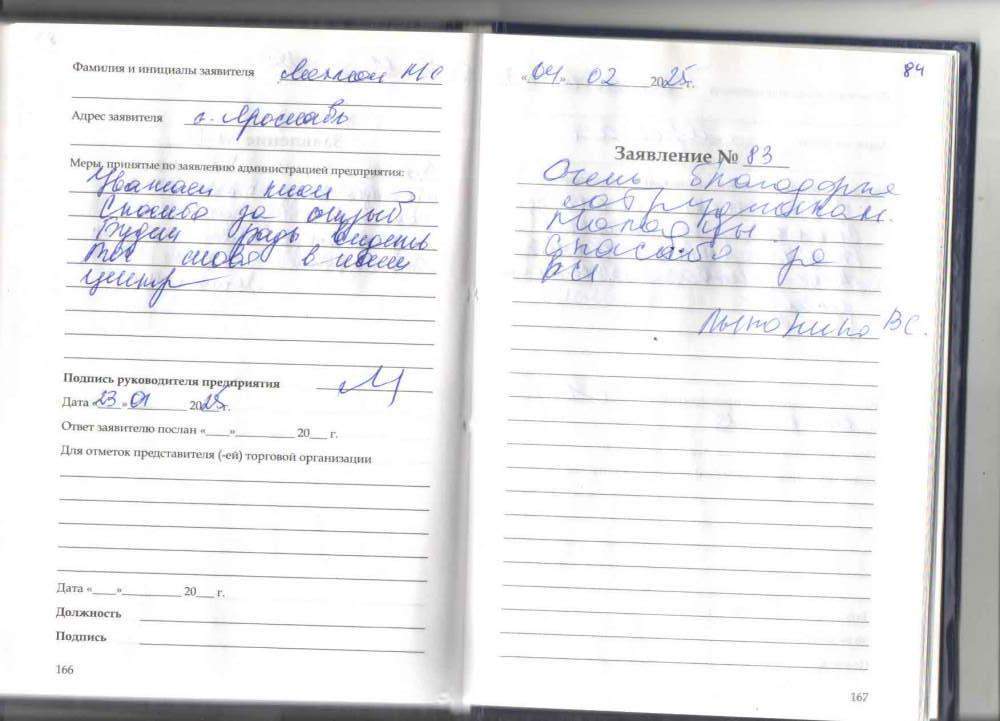 Фамилия и инициалы заявителя НС
Адрес заявителя г. Ярославль
Меры, принятые по заявлению администрацией предприятия:
Уважаем
Спасибо за отзыв
Будем рады видеть
Вас снова в нашем
центре
Подпись руководителя предприятия
Дата «23» 01 2025г.
Ответ заявителю послан «____»__________ 20___ г.
Для отметок представителя (-ей) торговой организации
Дата «____»__________ 20___ г.
Должность
Подпись
166
84
«04» 02 2025г.
Заявление № 83
Очень благодарна
сотрудникам.
Молодцы.
Спасибо за
всё
ВС.
167